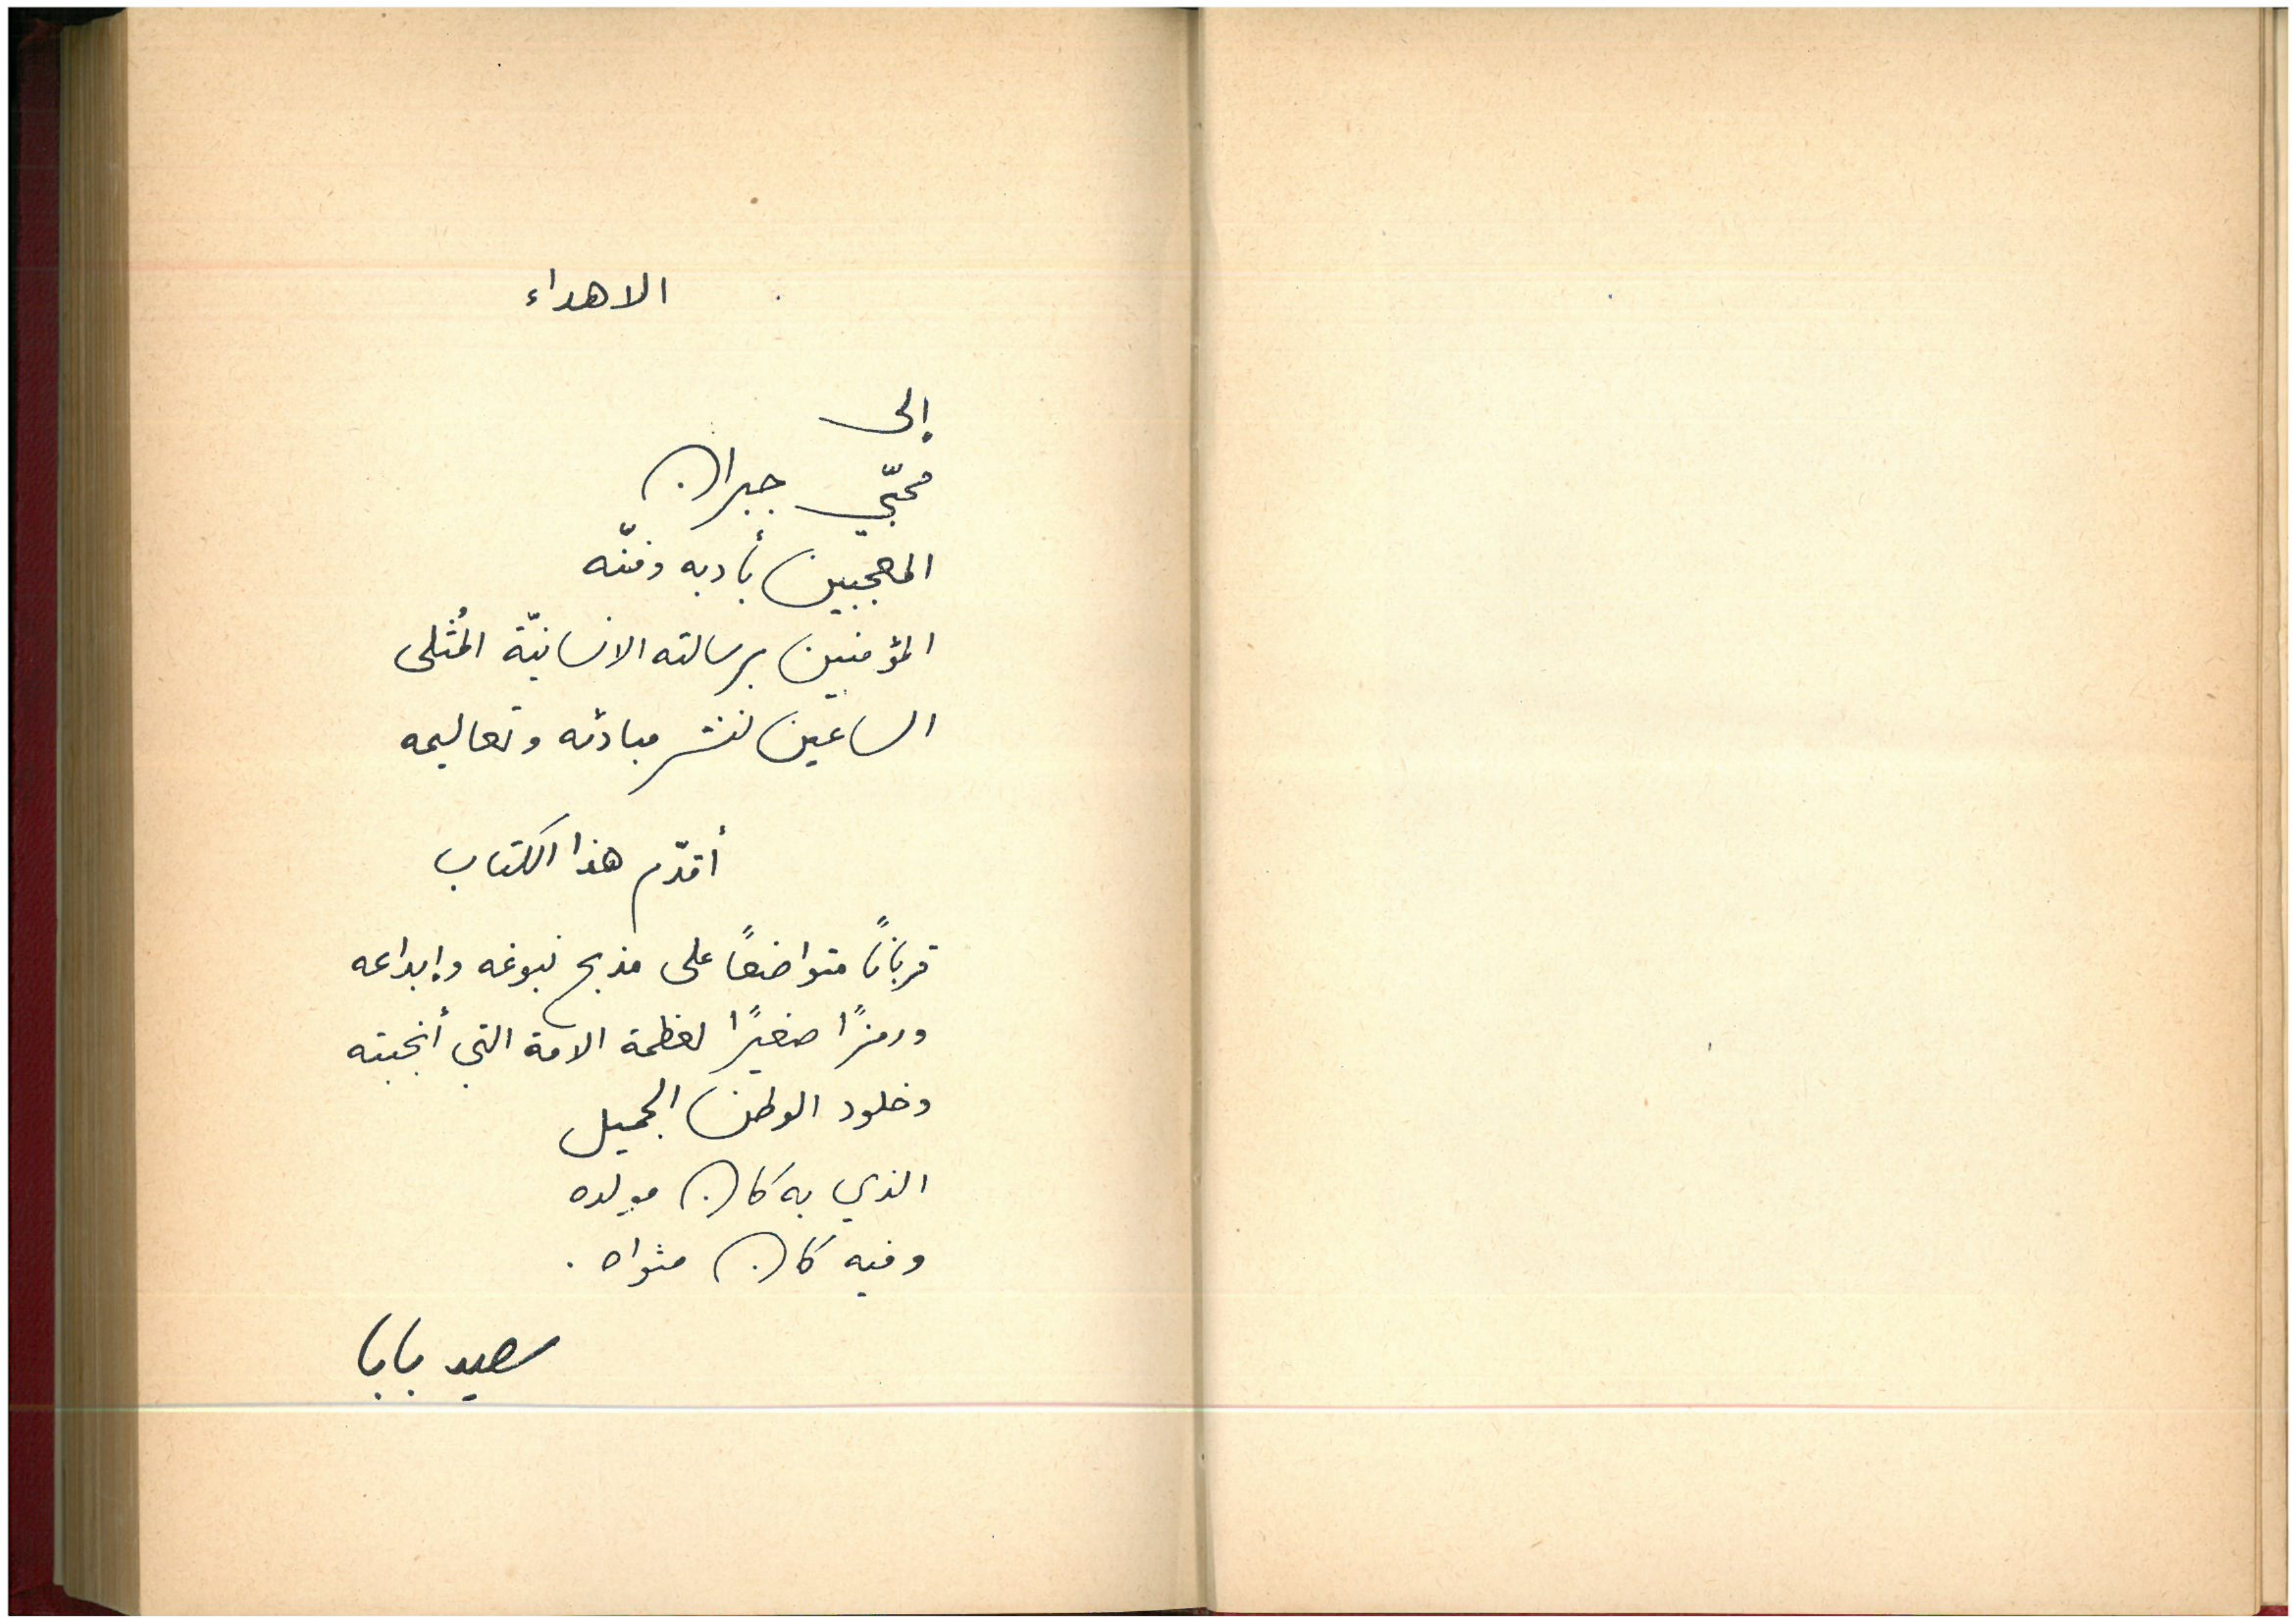 الاهداء
إلى
محبّي جبران
المعجبين بأدبه وفنّه
المؤمنين برسالته الانسانيّة المُثلى
الساعين لنشر مبادئه وتعاليمه
أقدّم هذا الكتاب
قرباناً متواضعاً على مذبح نبوغه وإبداعه
ورمزاً صغيراً لعظمة الامة التي أنجبته
وخلود الوطن الجميل
الذي به كان مولده
وفيه كان مثواه.
سعيد بابا